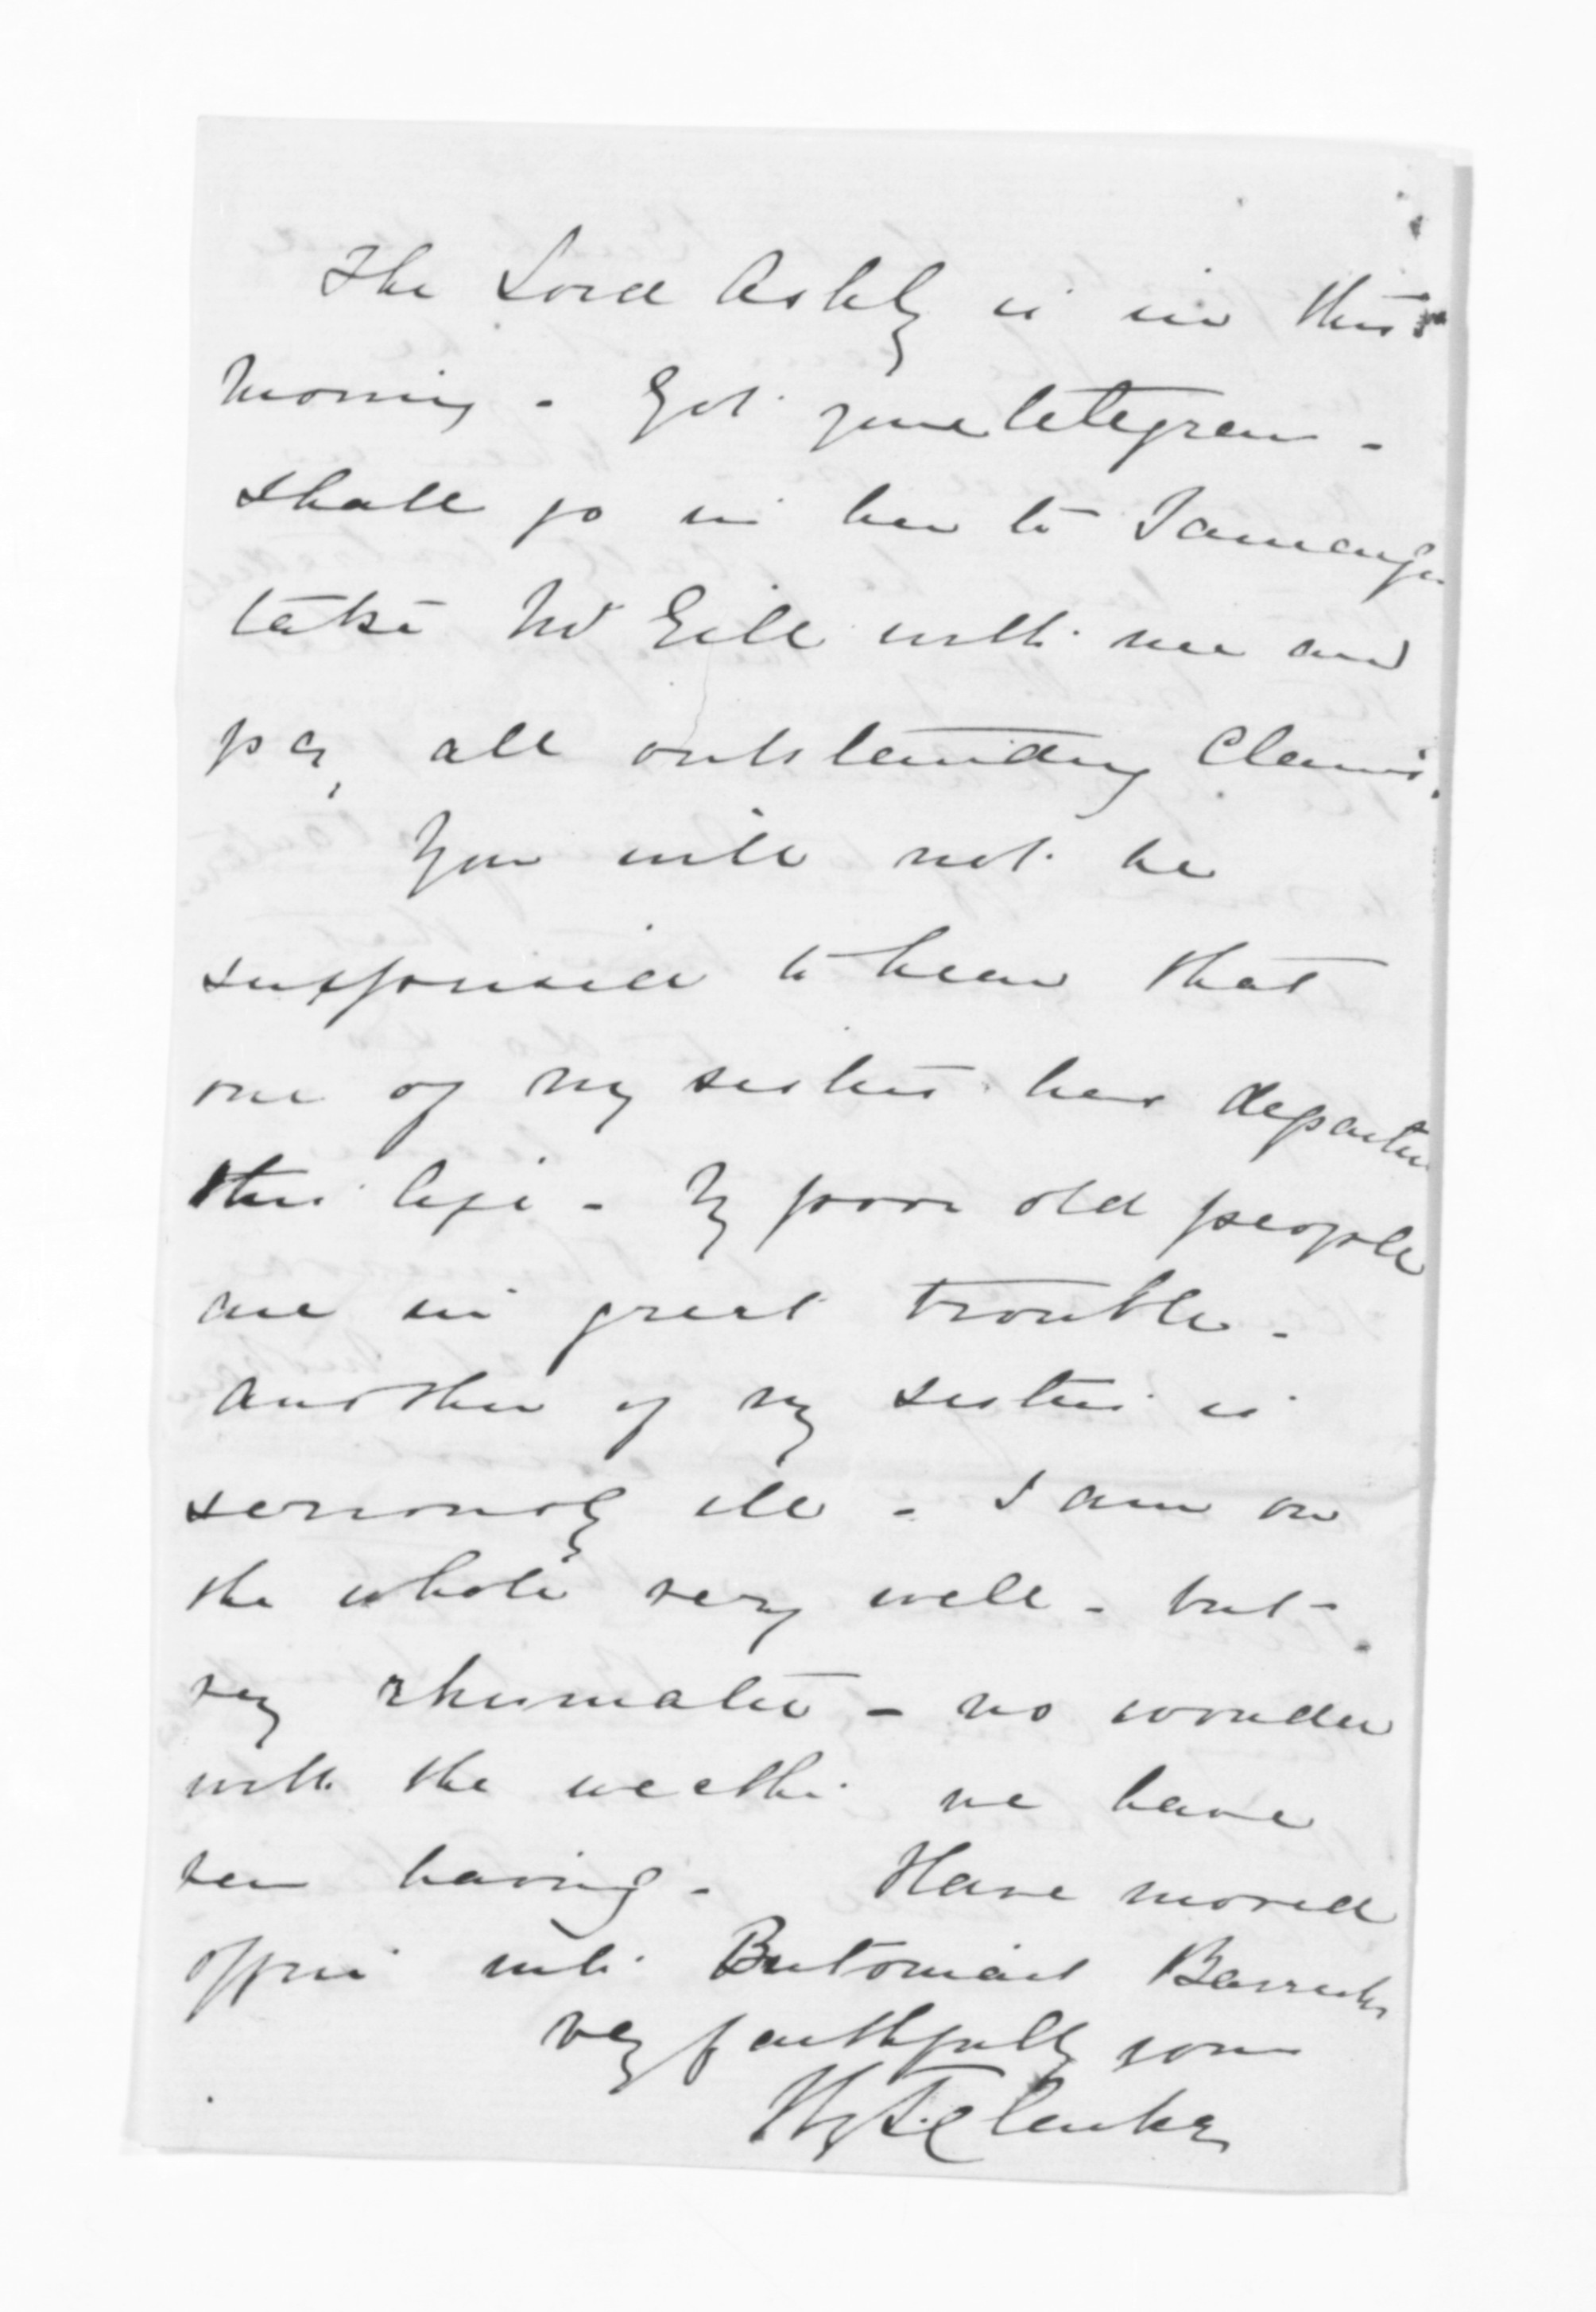 The Lord Ashley is in this
morning - Got your telegram -
shall go in her to Tauranga
take Mr Gill with me and
pay all outstanding Claims.
You will not be
surprised to hear that
one of my sisters has departed
this life - My poor old people
are in great trouble -
another of my sisters is
seriously ill - I am on
the whole very well - but
very rheumatic - no wonder
with the weather we have
been having - Have moved
office into Britomart Barracks
very faithfully yours
Hy T. Clarke